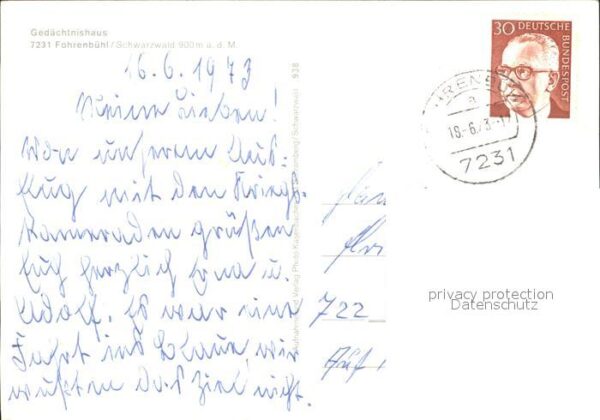 Gedächtnishaus
7231 Fohrenbühl/Schwarzwald 900 m ü. d. M.
16.6.1973
Meine Lieben!
Von unserem Aus-
flug mit den Kriegs-
kameraden grüßen
Euch herzlich Erna u.
Adolf. Es war eine
Fahrt ins Blaue, wir
wußten das Ziel nicht.
938
Aufnahme und Verlag Photo
/Schwarzwald
Fam
722
Auf
30 DEUTSCHE
BUNDESPOST
a
18.-6.73-17
7231
privacy protection
Datenschutz